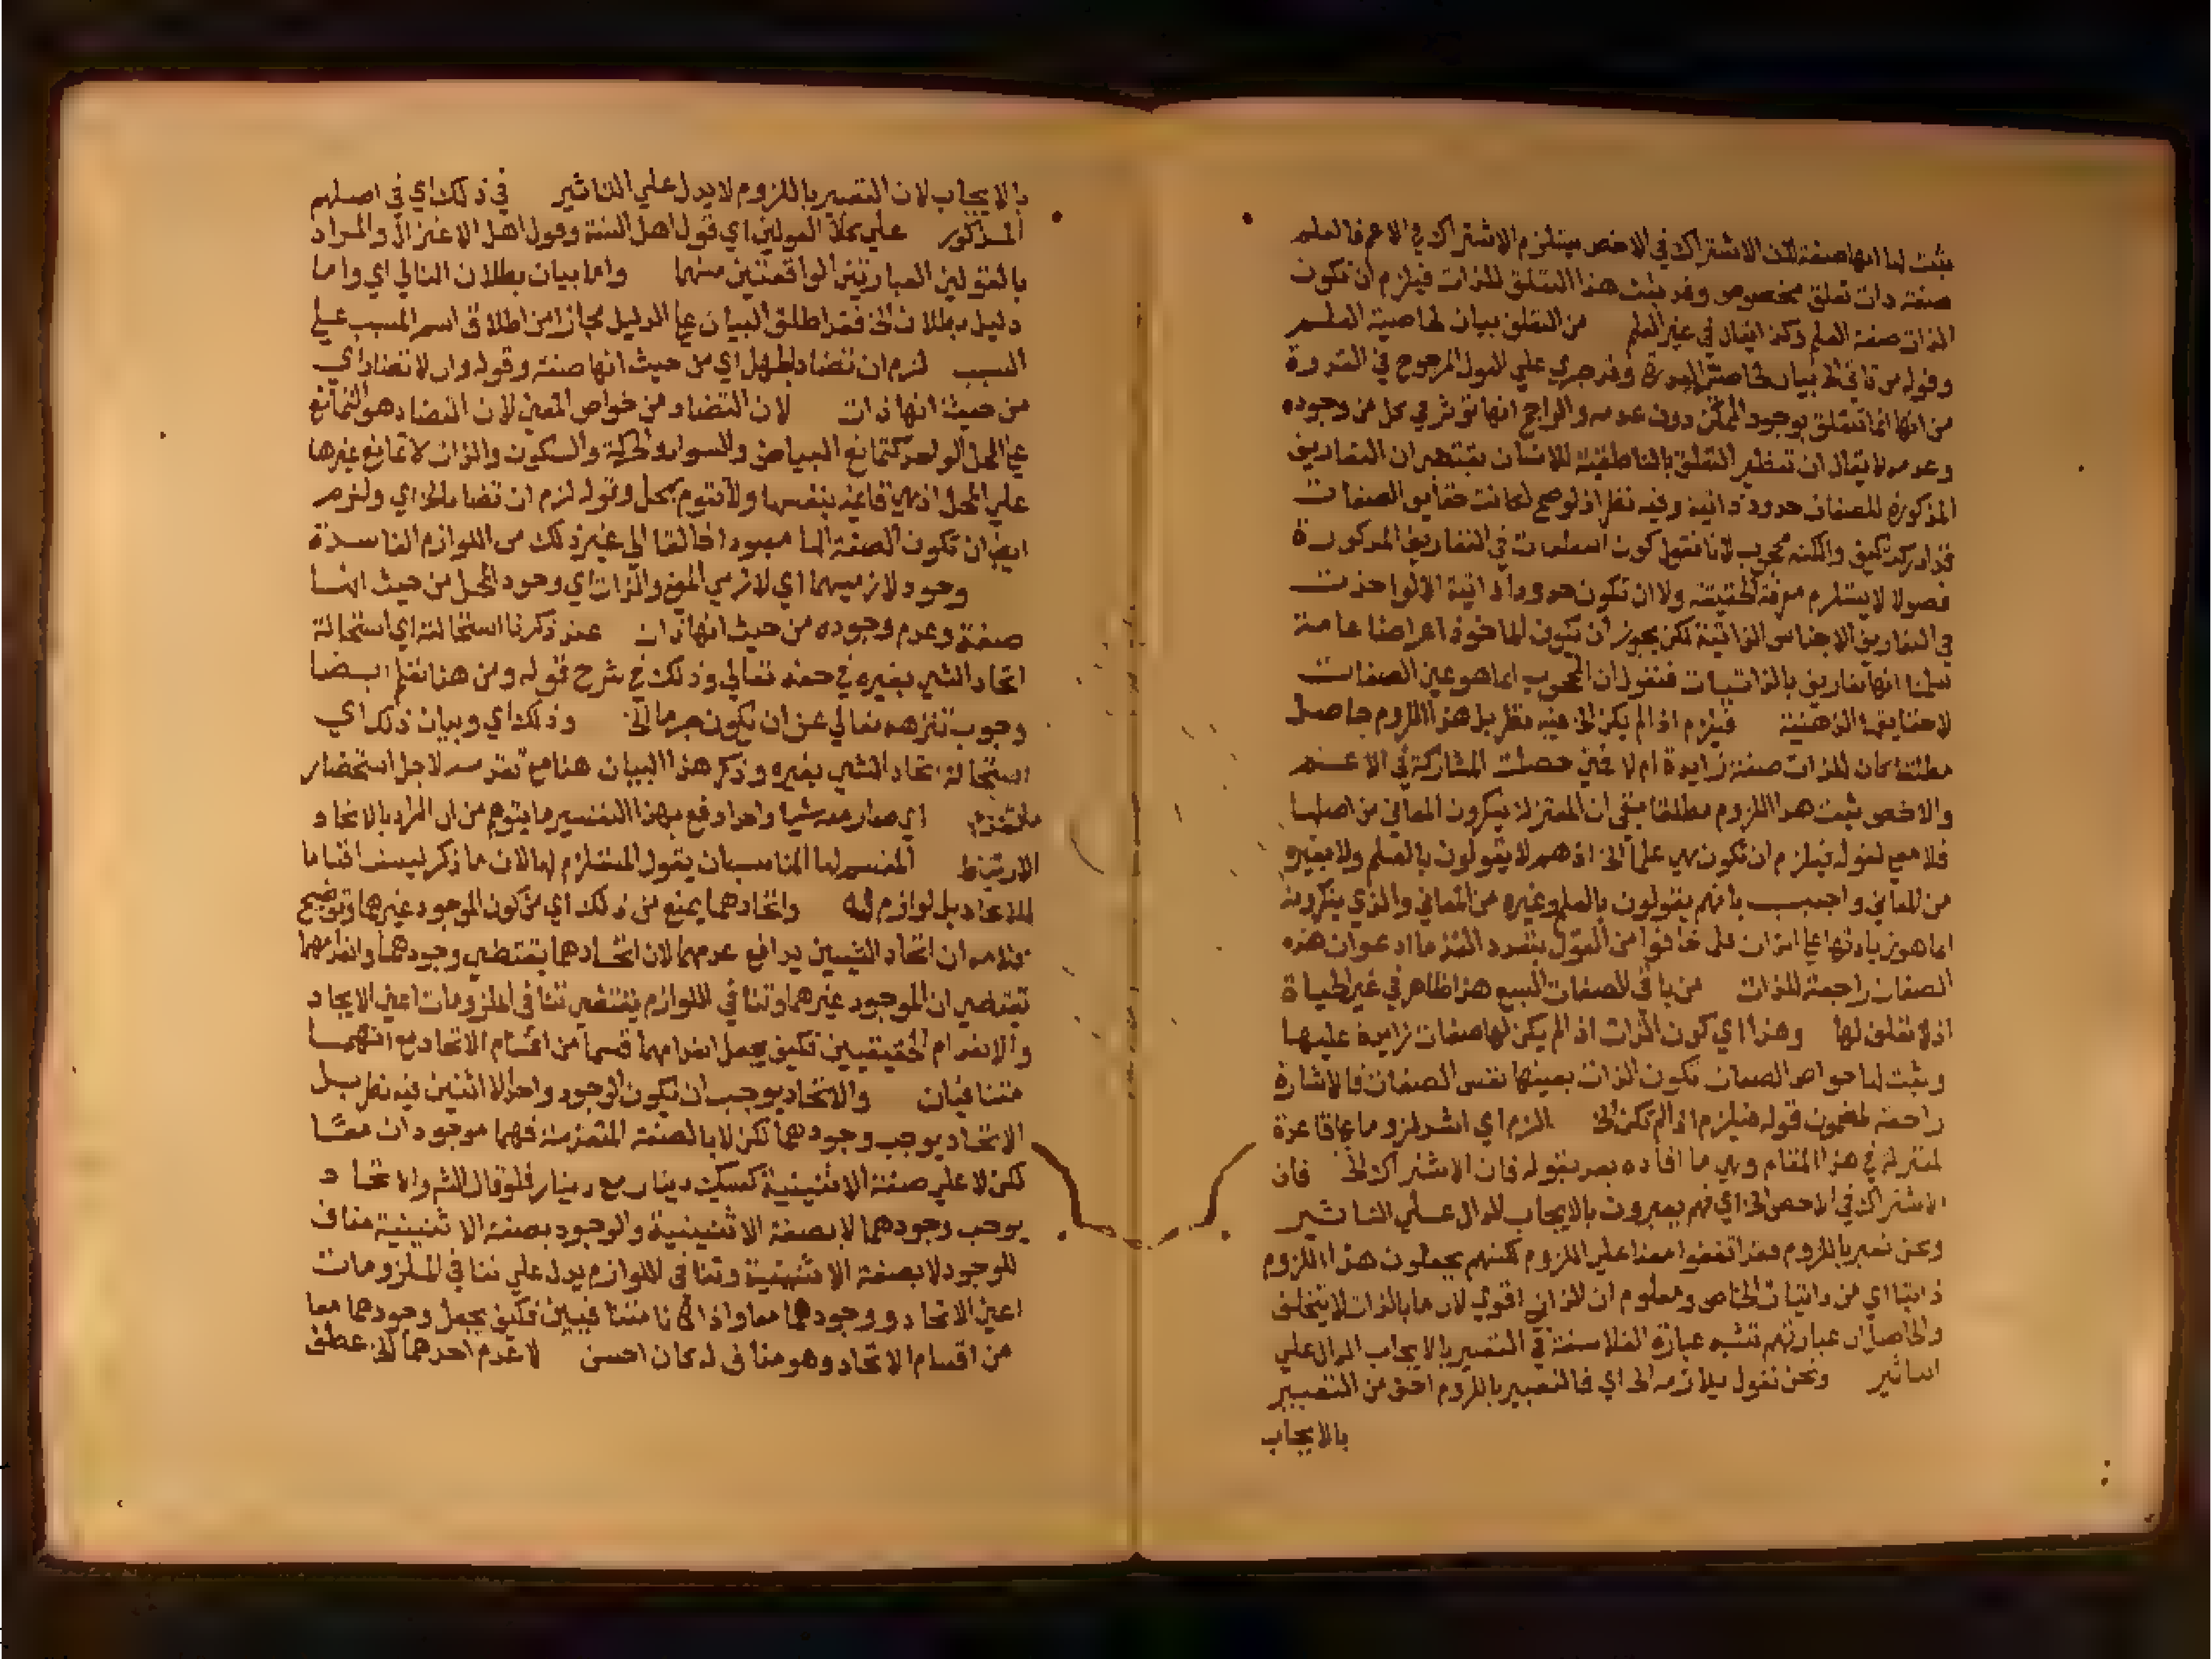 ثبت لها انها صفة لان الاشتراك في الاخص يستلزم الاشتراك في الاعم فالعلم
صفة ذات تعلق مخصوص وقد ثبت هذا التعلق للذات فيلزم ان تكون
الذات صفة العلم وكذا يقال في غير العلم من التعلق بيان لخاصية العلم
وقوله من تاتي الخ بيان لخاصية القدرة وقد جري علي القول المرجوح في القدرة
من انها انما تتعلق بوجود الممكن دون عدمه والراجح انها توثر في كل من وجوده
وعدمه لا يقال ان تنظير التعلق بالناطقية للانسان يقتضي ان التعاريف
المذكورة للصفات حدود ذاتية وفيه نظر اذ لو صح لكانت حقايق الصفات
قد ادركت كيف والكنه محجوب لانا نقول كون المعلومات في التعاريف المذكورة
فصولا لا يستلزم معرفة الحقيقة ولا ان تكون حدودا ذاتية الا لو اخذت
في التعاريف الاجناس الذاتية لكن يجوز ان تكون الماخوذ اعراضا عامة
سلمنا انها تعاريف بالذاتيات فنقول ان المحجوب انما هو عين الصفات
لا حقايقها الذهنية فيلزم اذا لم يكن الخ فيه نظر بل هذا اللزوم حاصل
مطلقا كان للذات صفة زايدة ام لا فمتي حصلت المشاركة في الاعم
والاخص ثبت هذا اللزوم مطلقا بقي ان المعتزلة ينكرون المعاني من اصلها
فلا معني لقوله فيلزم ان تكون هي علما الخ اذ هم لا يقولون بالعلم ولا بغيره
من المعاني واجيب بانهم يقولون بالعلم وغيره من المعاني والذي ينكرونه
انما هو زيادتها علي الذات فلما خافوا من القول بتعدد القدما ادعوا ان هذه
الصفات راجعة للذات من باقي الصفات السبع هذا ظاهر في غير الحياة
اذ لا تعلق لها وهذا اي كون الذات اذا لم يكن لها صفات زايدة عليها
وثبت لها خواص الصفات تكون الذات بعينها نفس الصفات فالاشارة
راجعة لمضمون قوله فيلزم اذا لم تكن الخ الزم اي اشد لزوما علي قاعدة
المعتزلة في هذا المقام وهي ما افاده بعد بقوله فان الاشتراك الخ فان
الاشتراك في الاخص الخ اي فهم يعبرون بالايجاب الدال علي التاثير
ونحن نعبر باللزوم فقد اتفقوا معنا علي اللزوم لكنهم يجعلون هذا اللزوم
ذاتيا اي من ذاتيات الخاص ومعلوم ان الذاتي اقوي لان ما بالذات لا يتخلف
والحاصل ان عبارتهم تشبه عبارة الفلاسفة في التعبير بالايجاب الدال علي
التاثير ونحن نقول بملازمه الخ اي فالتعبير باللزوم اخف من التعبير
بالايجاب
بالايجاب لان التعبير باللزوم لا يدل علي التاثير في ذلك اي في اصلهم
المذكور علي كلا القولين اي قول اهل السنة وقول اهل الاعتزال والمراد
بالقولين العبارتين الواقعتين منهما واما بيان بطلان التالي اي واما
دليل بطلان الخ فقد اطلق البيان علي الدليل مجازا من اطلاق اسم المسبب علي
السبب لزم ان تضاد الجهل اي من حيث انها صفة وقوله وان لا تضاد اي
من حيث انها ذات لان التضاد من خواص المعني لان التضاد هو التمانع
علي المحل الواحد كتمانع البياض والسواد والحركة والسكون والذات لا تمانع غيرها
علي المحل اذ هي قايمة بنفسها ولا تقوم بمحل وقوله لزم ان تضاد الخ اي ولزم
ايضا ان تكون الصفة الها معبودا خالقا الي غير ذلك من اللوازم الفاسدة
وجود لازميهما اي لازمي المعني والذات اي وجود المحل من حيث انها
صفة وعدم وجوده من حيث انها ذات عند ذكرنا استحالته اي استحالة
اتحاد الشي بغيره في حقه تعالي وذلك في شرح قوله ومن هنا تعلم ايضا
وجوب تنزهه تعالي عن ان يكون جرما الخ وذلك اي وبيان ذلك اي
استحالة اتحاد الشي بغيره وذكر هذا البيان هنا مع تقدمه لاجل استحضار
ما تقدم اي صار معه شيا واحدا دفع بهذا التفسير ما يتوهم من ان المراد بالاتحاد
الارتباط المقسم لها المناسب ان يقول المستلزم لها لان ما ذكر ليست اقساما
للاتحاد بل لوازم له واتحادهما يمنع من ذلك اي من كون الموجود غيرهما وتوضيح
كلامه ان اتحاد الشيين يدافع عدمهما لان اتحادهما يقتضي وجودهما وانعدامهما
يقتضي ان الموجود غيرهما وتنافي اللوازم يقتضي تنافي الملزومات اعني الاتحاد
والانعدام الحقيقيين فكيف يجعل انعدامهما قسما من اقسام الاتحاد مع انهما
متنافيان والاتحاد يوجب ان يكون الوجود واحدا لا اثنين فيه نظر بل
الاتحاد يوجب وجودهما لكن لا بالصفة المتقدمة فهما موجودان معا
لكن لا علي صفة الاثنينية كسبك دينار مع دينار فلو قال الشم والاتحاد
يوجب وجودهما لا بصفة الاثنينية والوجود بصفة الاثنينية مناف
للوجود لا بصفة الاثنينية وتنافي اللوازم يدل علي تنافي الملزومات
اعني الاتحاد ووجودهما معا واذا كانا متنافيين فكيف يجعل وجودهما معا
من اقسام الاتحاد وهو مناف له كان احسن لا عدم احدهما الخ عطف